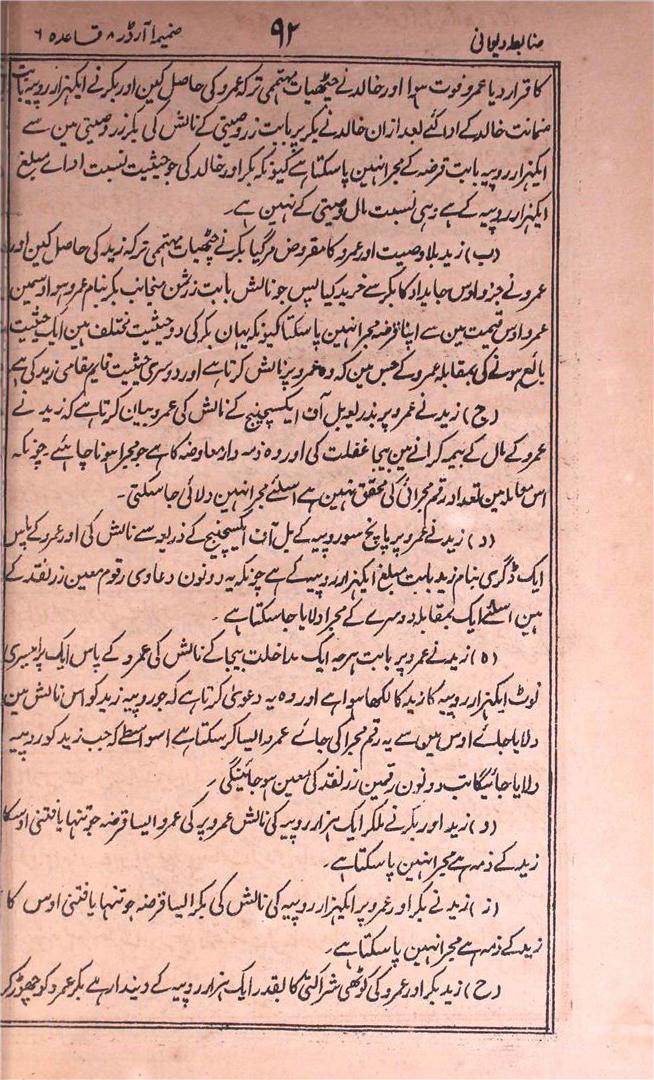 ضابطہ دیوانی ۹۲ ضمیمہ ا آرڈر ۸ قاعدہ ۶
کا قرار دیا عمرو فوت ہوا اور خالد نے چٹھیات مہتممی ترکہ عمرو کی حاصل کین اور بکر نے ایکہزار روپیہ بابت
ضمانت خالد کے ادا کئے بعد ازان خالد نے بکر پر بابت زر وصیتی کے نالش کی بکر زر وصیتی مین سے
ایکہزار روپیہ بابت قرضہ کے مجرا نہین پا سکتا ہے کیونکہ بکر اور خالد کی جو حیثیت نسبت اداے مبلغ
ایکہزار روپیہ کے ہے وہی نسبت مال وصیتی کے نہین ہے۔
(ب) زید بلا وصیت اور عمرو کا مقروض مر گیا بکر نے چٹھیات مہتممی ترکہ زید کی حاصل کین اور
عمرو نے جزو اوس جایداد کا بکر سے خرید کیا پس جو نالش بابت زر ثمن منجانب بکر بنام عمرو ہو اوسمین
عمرو اوس قیمت مین سے اپنا قرضہ مجرا نہین پا سکتا کیونکہ یہان بکر کی دو حیثیت مختلف ہین ایک حیثیت
بائع ہونے کی بمقابلہ عمرو کے جس مین کہ وہ عمرو پر نالش کرتا ہے اور دوسری حیثیت قایم مقامی زید کی ہے
(ج) زید نے عمرو پر بذریعہ بل آف ایکسچینج کے نالش کی عمرو بیان کرتا ہے کہ زید نے
عمرو کے مال کے بیمہ کرانے مین بیجا غفلت کی اور وہ ذمہ دار معاوضہ کا ہے جو مجرا ہونا چاہئے۔ چونکہ
اس معاملہ مین تعداد رقم مجرائی کی محقق نہین ہے اسلئے مجرا نہین دلائی جا سکتی۔
(د) زید نے عمرو پر پانچ سو روپیہ کے بل آف ایکسچینج کے ذریعہ سے نالش کی اور عمرو کے پاس
ایک ڈگری بنام زید بابت مبلغ ایکہزار روپیہ کے ہے چونکہ یہ دونون دعاوی رقوم معین زر نقد کے
ہین اسلئے ایک بمقابلہ دوسرے کے مجرا دلایا جا سکتا ہے۔
(ہ) زید نے عمرو پر بابت ہرجہ ایک مداخلت بیجا کے نالش کی عمرو کے پاس ایک پرامیسری
نوٹ ایکہزار روپیہ کا زید کا لکھا ہوا ہے اور وہ یہ دعویٰ کرتا ہے کہ جو روپیہ زید کو اس نالش مین
دلایا جائے اوس مین سے یہ رقم مجرا کی جائے عمرو ایسا کر سکتا ہے اسواسطے کہ جب زید کو روپیہ
دلایا جائیگا تب دونون رقمین زر نقد کی معین ہو جائینگی۔
(و) زید اور بکر نے ملکر ایک ہزار روپیہ کی نالش عمرو پر کی عمرو ایسا قرضہ جو تنہا یافتنی اوسکا
زید کے ذمہ ہے مجرا نہین پا سکتا ہے۔
(ز) زید نے بکر اور عمرو پر ایکہزار روپیہ کی نالش کی بکر ایسا قرضہ جو تنہا یافتنی اوس کا
زید کے ذمہ ہے مجرا نہین پا سکتا ہے۔
(ح) زید بکر اور عمرو کی کوٹھی شراکتی کا بقدر ایک ہزار روپیہ کے دیندار ہے بکر عمرو کو چھوڑ کر